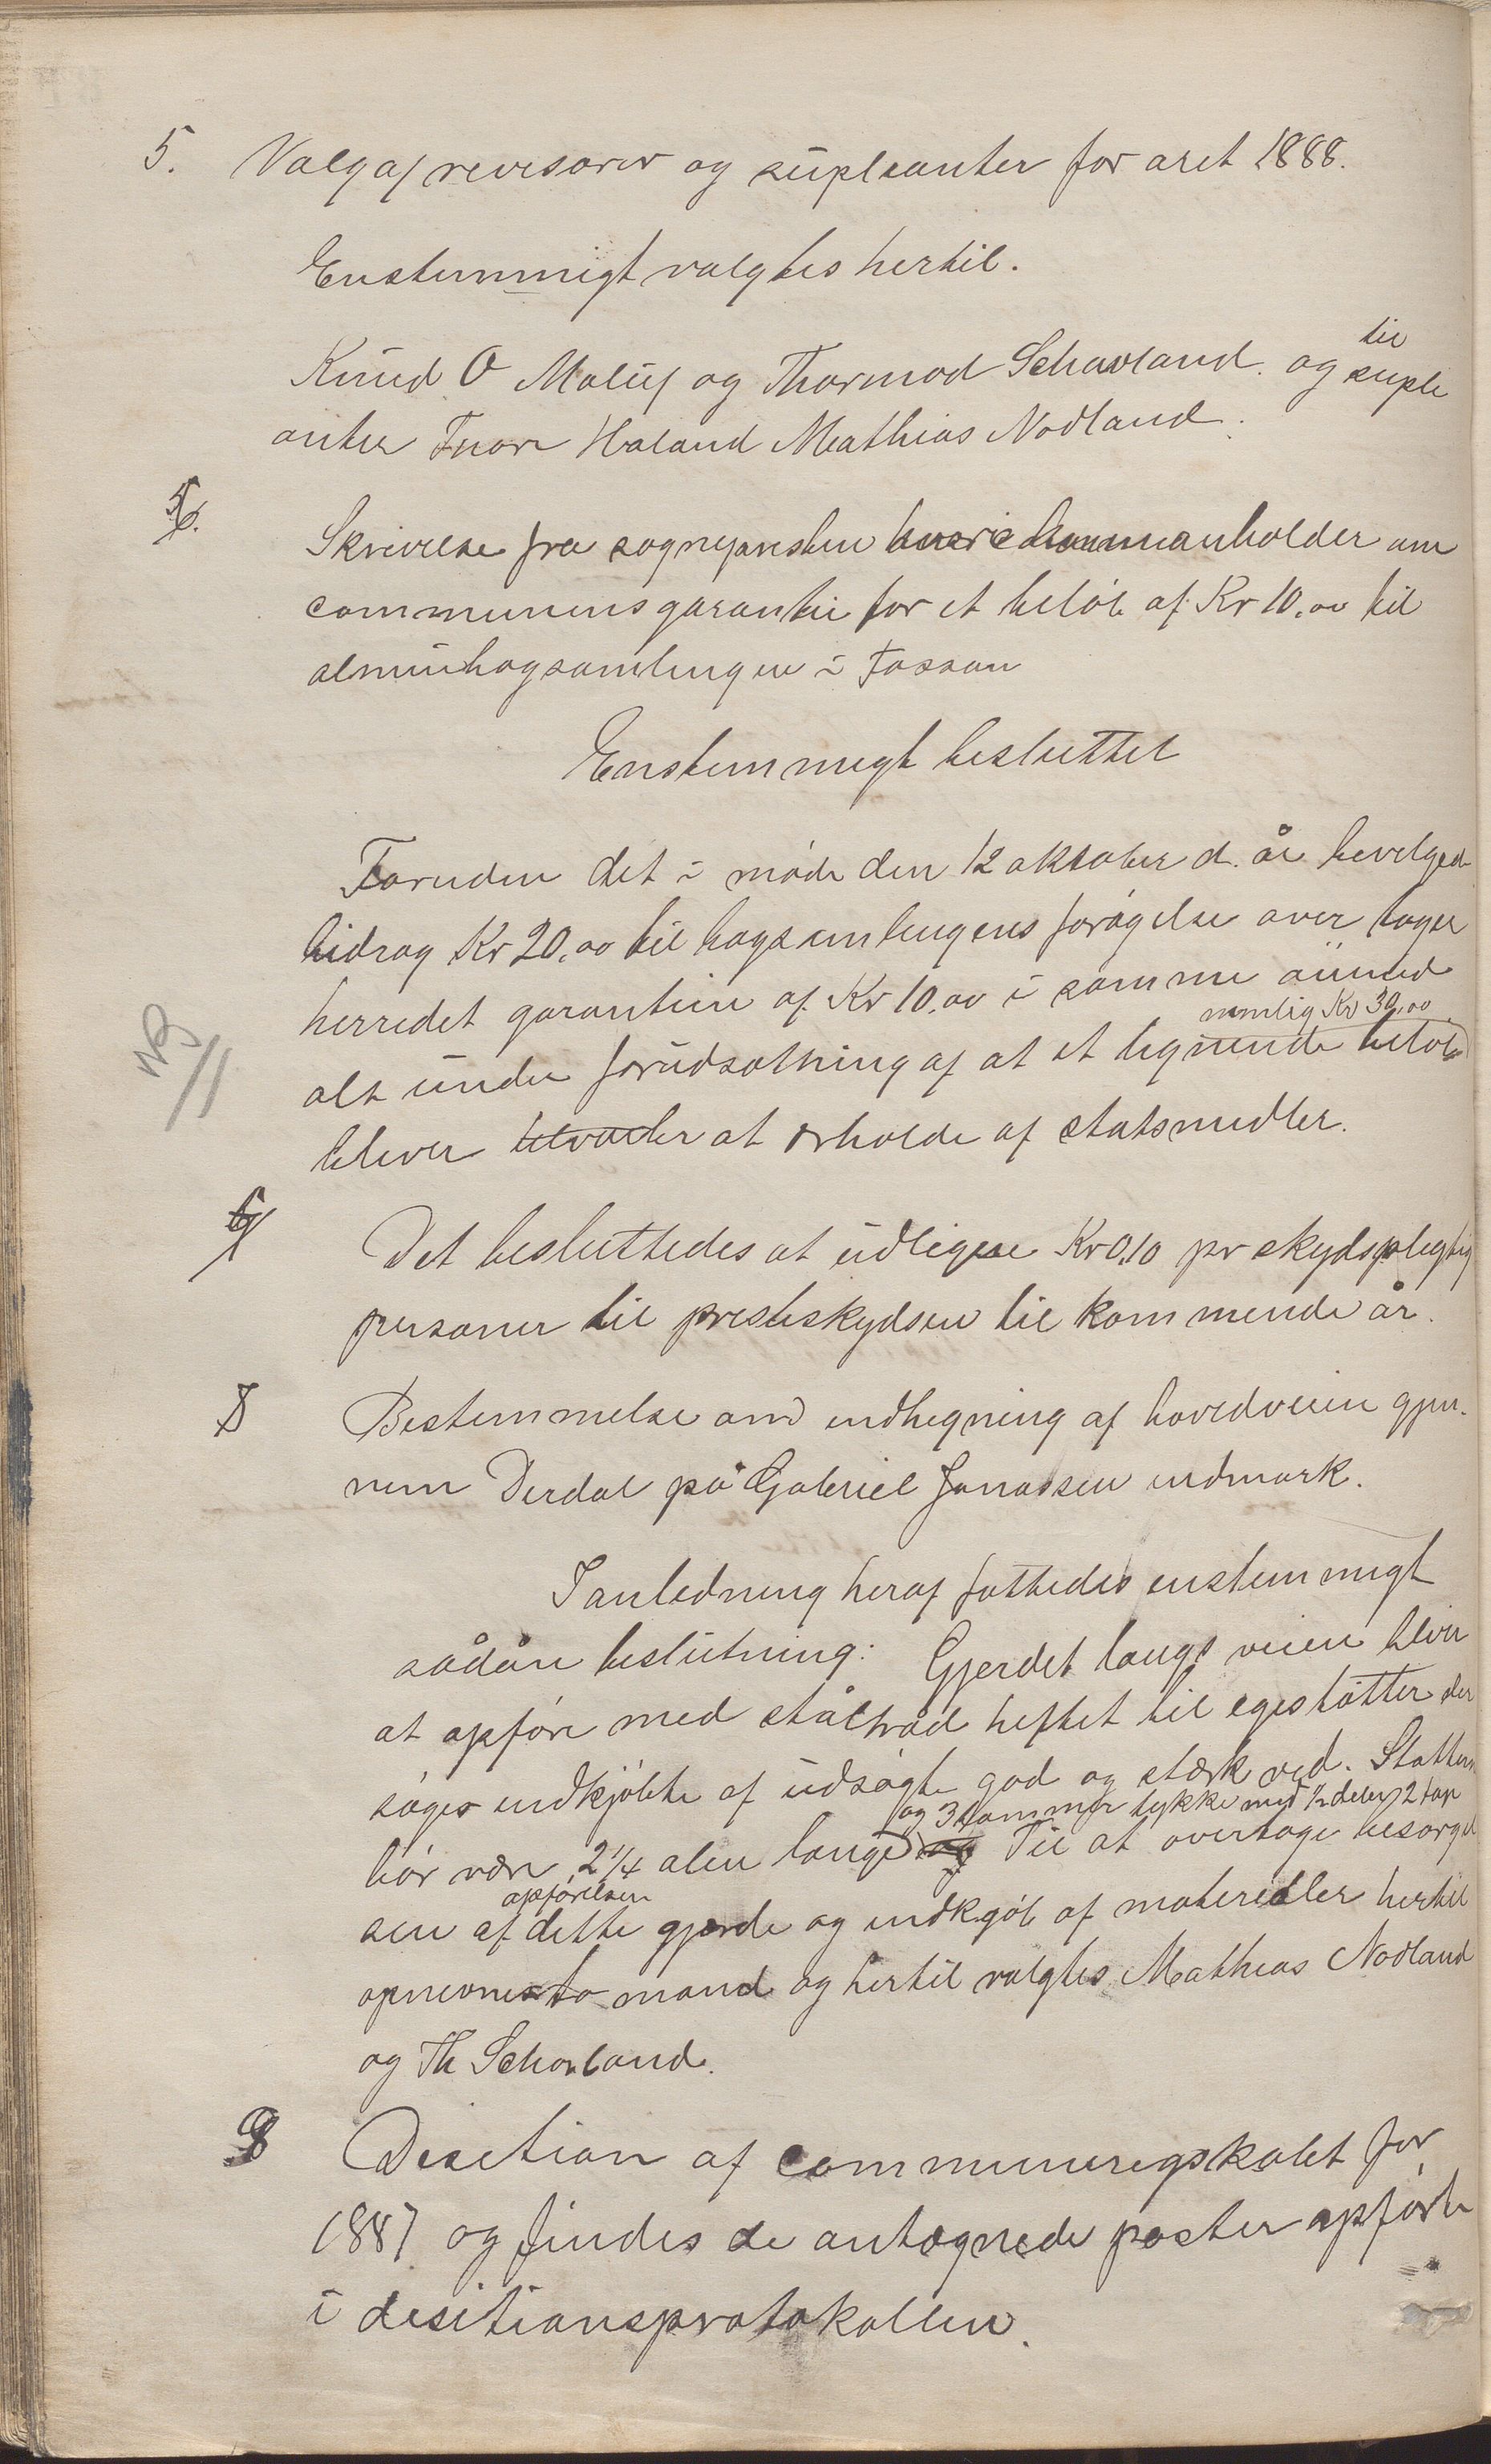 5. Valg af revisorer og supleanter for aret 1888.
Enstemmigt valgtes hertil.
Knud O Maluf og Thormod Schavland. og til suple
anter Tnore Haland Mathias Nodland.
6. Skrivelse fra sognepresten hvori han anholder om
communens garanti for et beløb af Kr 10,00 til
almuebogsamlingen i Fossan
Enstemmigt besluttet
Foruden det i møde den 12 oktober d. år bevilged
bidrag Kr 20,00 til bogsamlingens forøgelse over tager
herredet garantien af Kr 10,00 i samme øiemed
alt under forudsætning af at et lignende beløb nemlig Kr 30,00
NB
bliver at erholde af statsmidler.
7 Det besluttedes at udligne Kr 0,10 pr skydspligtig
personer til presteskydsen til kommende år.
8 Bestemmelse om indhegning af hovedveien gjen-
nem Dirdal på Gabriel Jonassen indmark.
I anledning heraf fattedes enstemmigt
sådån beslutning: Gjerdet langs veien bliver
at opføre med ståltråd heftet til egestøtter der
søges indkjøbte af udsøgte god og stærk ved. Støttern
bør være 2 1/4 alen lange og 3 tommer tykke med 1/2 deler 2 top Til at overtage besørgel
sen af opførelsen dette gjerde og indkjøb af materialler hertil
opnevnes to mænd og hertil valgtes Mathias Nodland
og Th Schavland.
9 Desition af communeregskabet for
1887 og findes de antegnede poster opførte
i desitionsprotokollen.